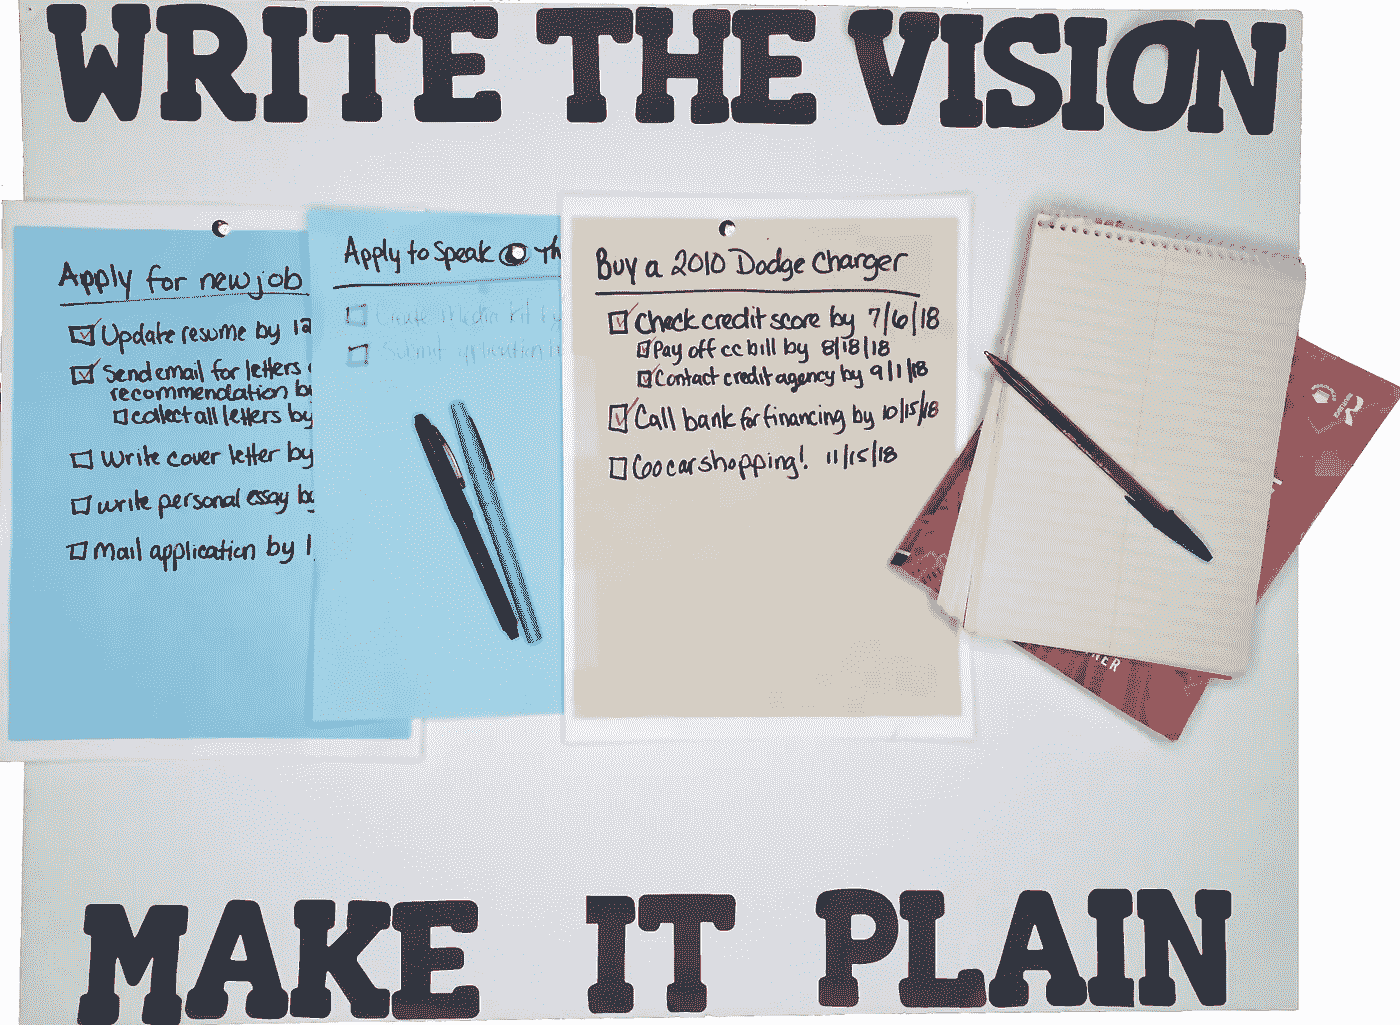 WRITE THE VISION
Apply for new job
Update resume by 12
Send email for letters
recommendation by
collect all letters by
Write cover letter by
write personal essay by
Mail application by 1
Apply to Speak @ Th
Create Media kit by
Submit application
Buy a 2010 Dodge Charger
Check credit score by 7/6/18
Pay off cc bill by 8/18/18
Contact credit agency by 9/1/18
Call bank for financing by 10/15/18
Goo car shopping! 11/15/18
NER
MAKE IT PLAIN